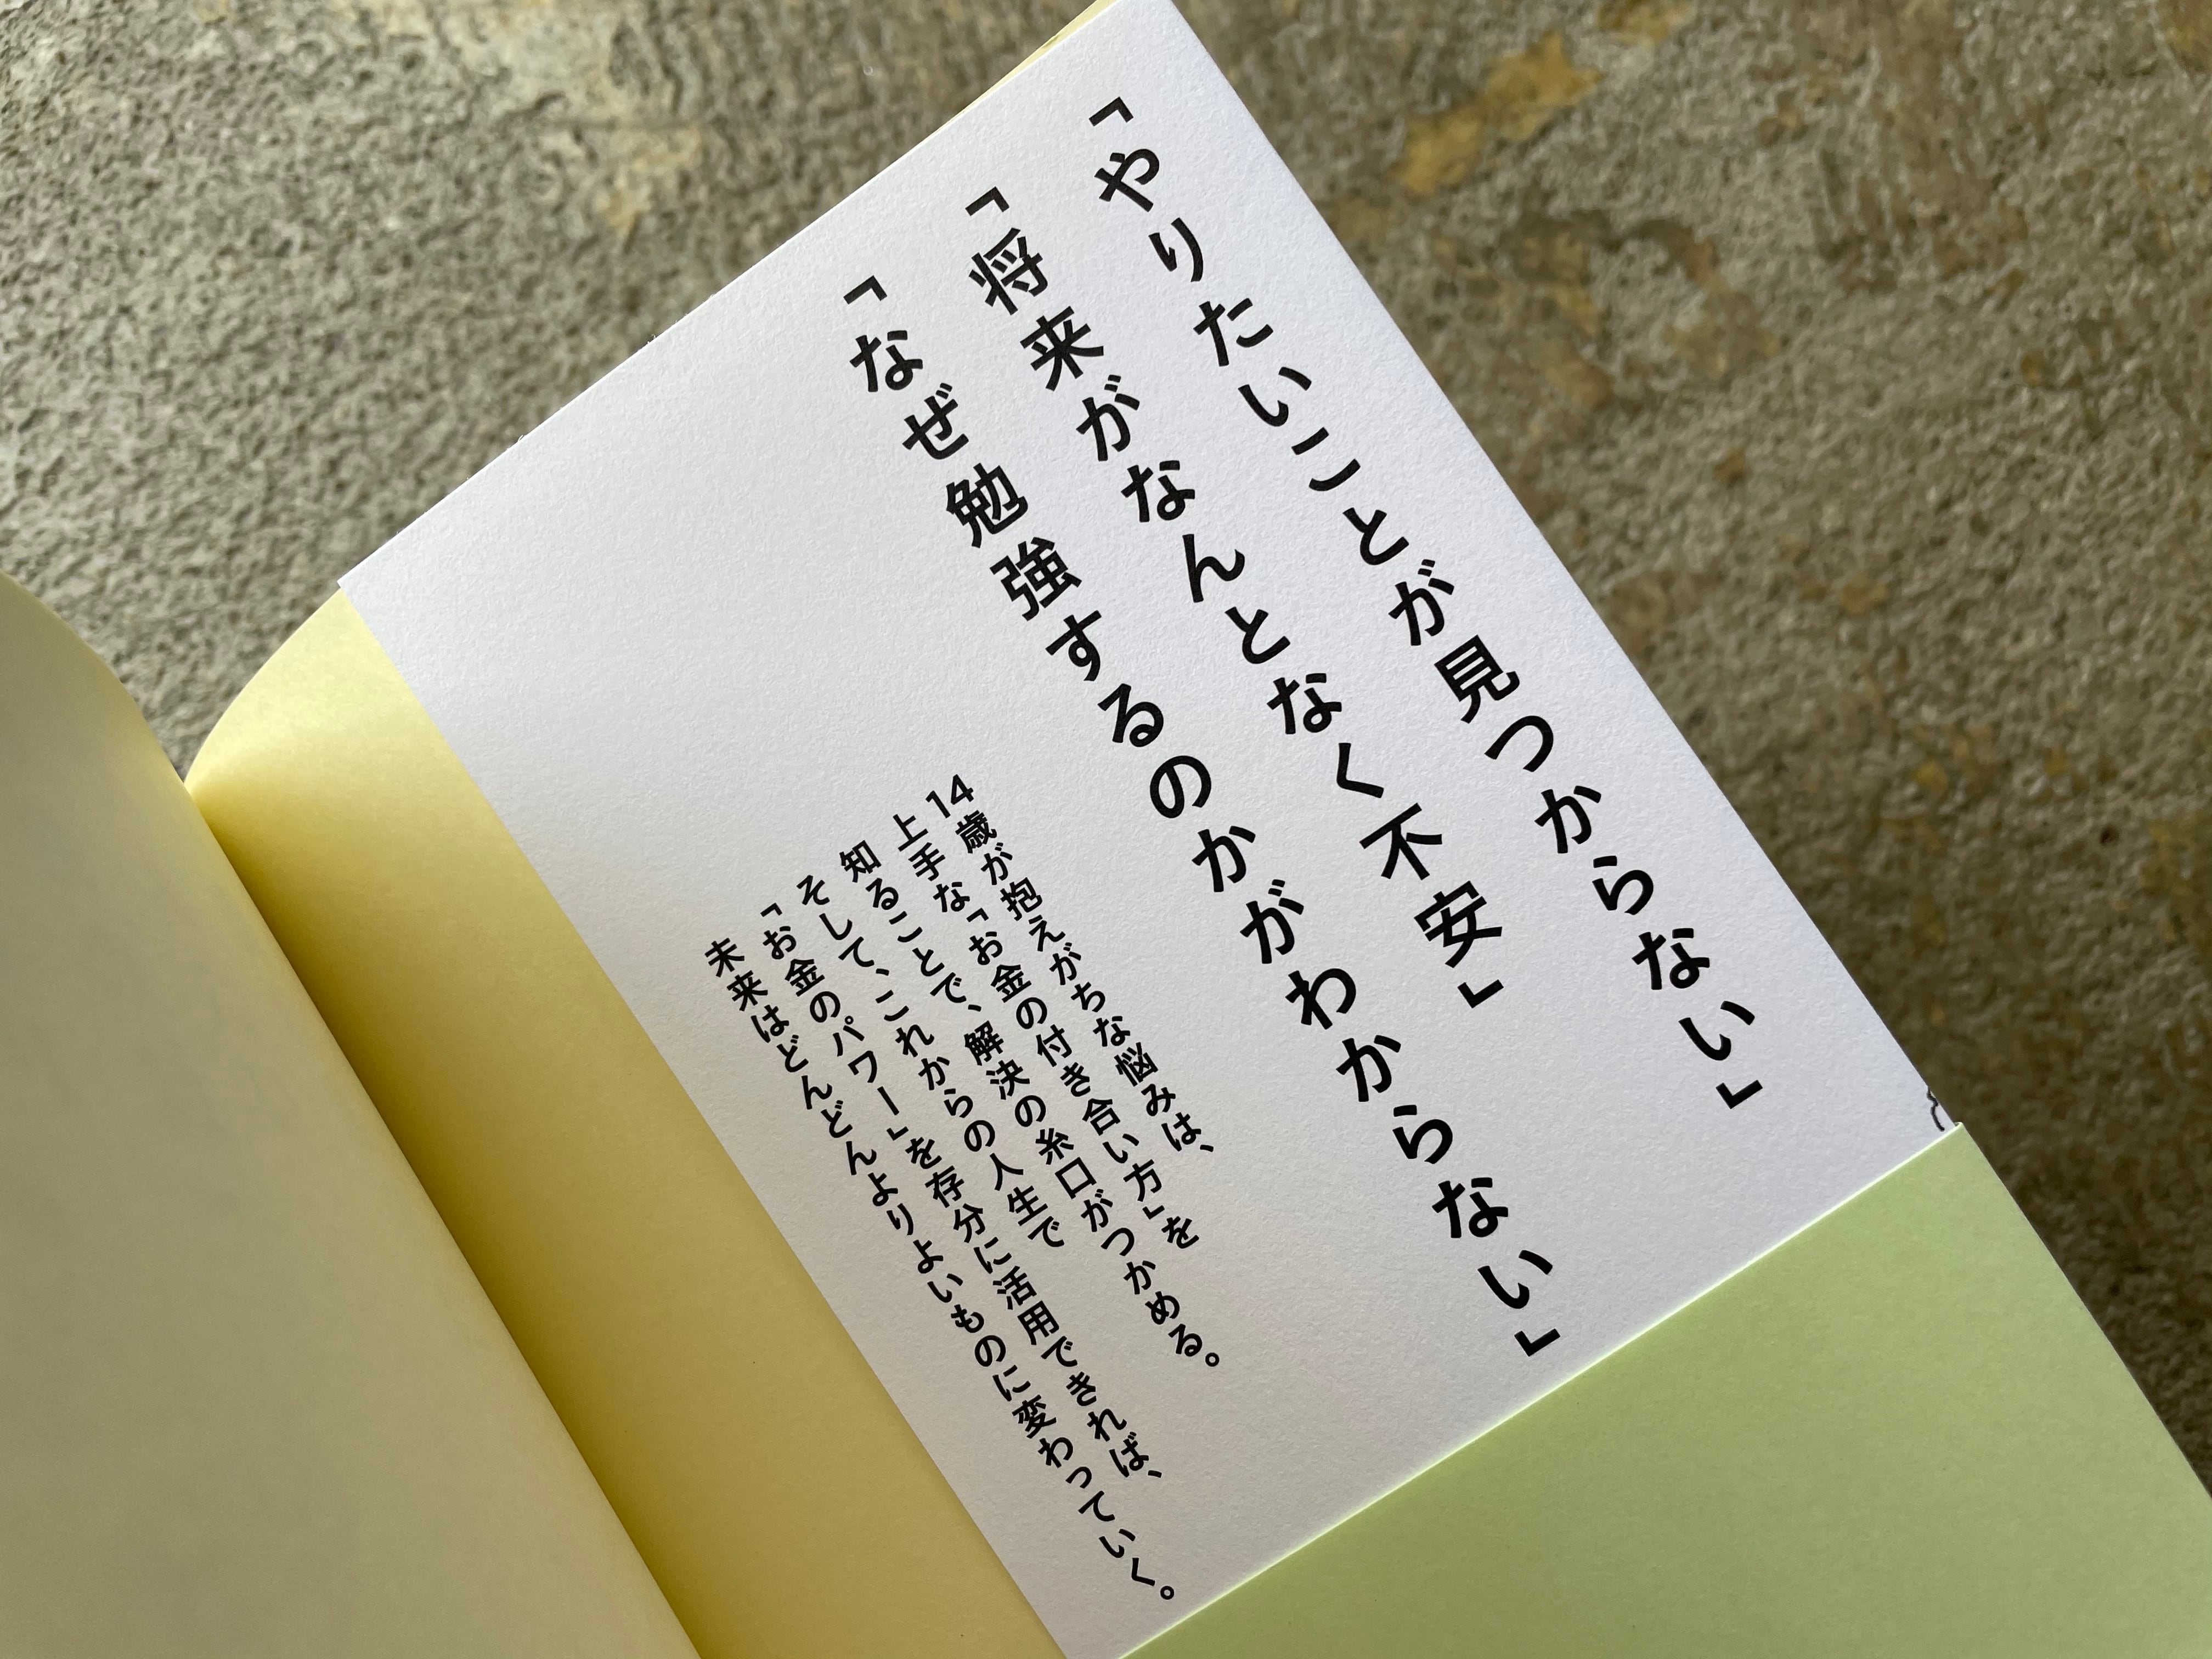 「やりたいことが見つからない」
「将来がなんとなく不安」
「なぜ勉強するのかがわからない」
14歳が抱えがちな悩みは、
上手な「お金の付き合い方」を
知ることで、解決の糸口がつかめる。
そして、これからの人生で
「お金のパワー」を存分に活用できれば、
未来はどんどんよりよいものに変わっていく。